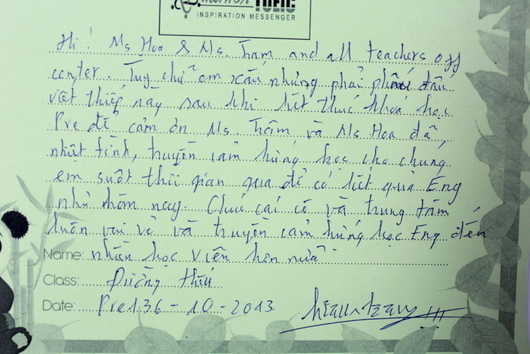 TOEIC
INSPIRATION MESSENGER
Hi! Ms Hoa & Ms. Tram and all teachers off
center. Tuy chữ em xấu nhưng phải phấn đấu
viết thiếp này sau khi kết thúc khoá học
Pre để cảm ơn Ms. Trâm và Ms Hoa đã
nhiệt tình, truyền cảm hứng học cho chúng
em suốt thời gian qua để có kết quả Eng
như hôm nay. Chúc các cô và trung tâm
luôn vui vẻ và truyền cảm hứng học Eng đến
Name: nhiều học viên hơn nữa
Class:
Date: Pre136-10-2013